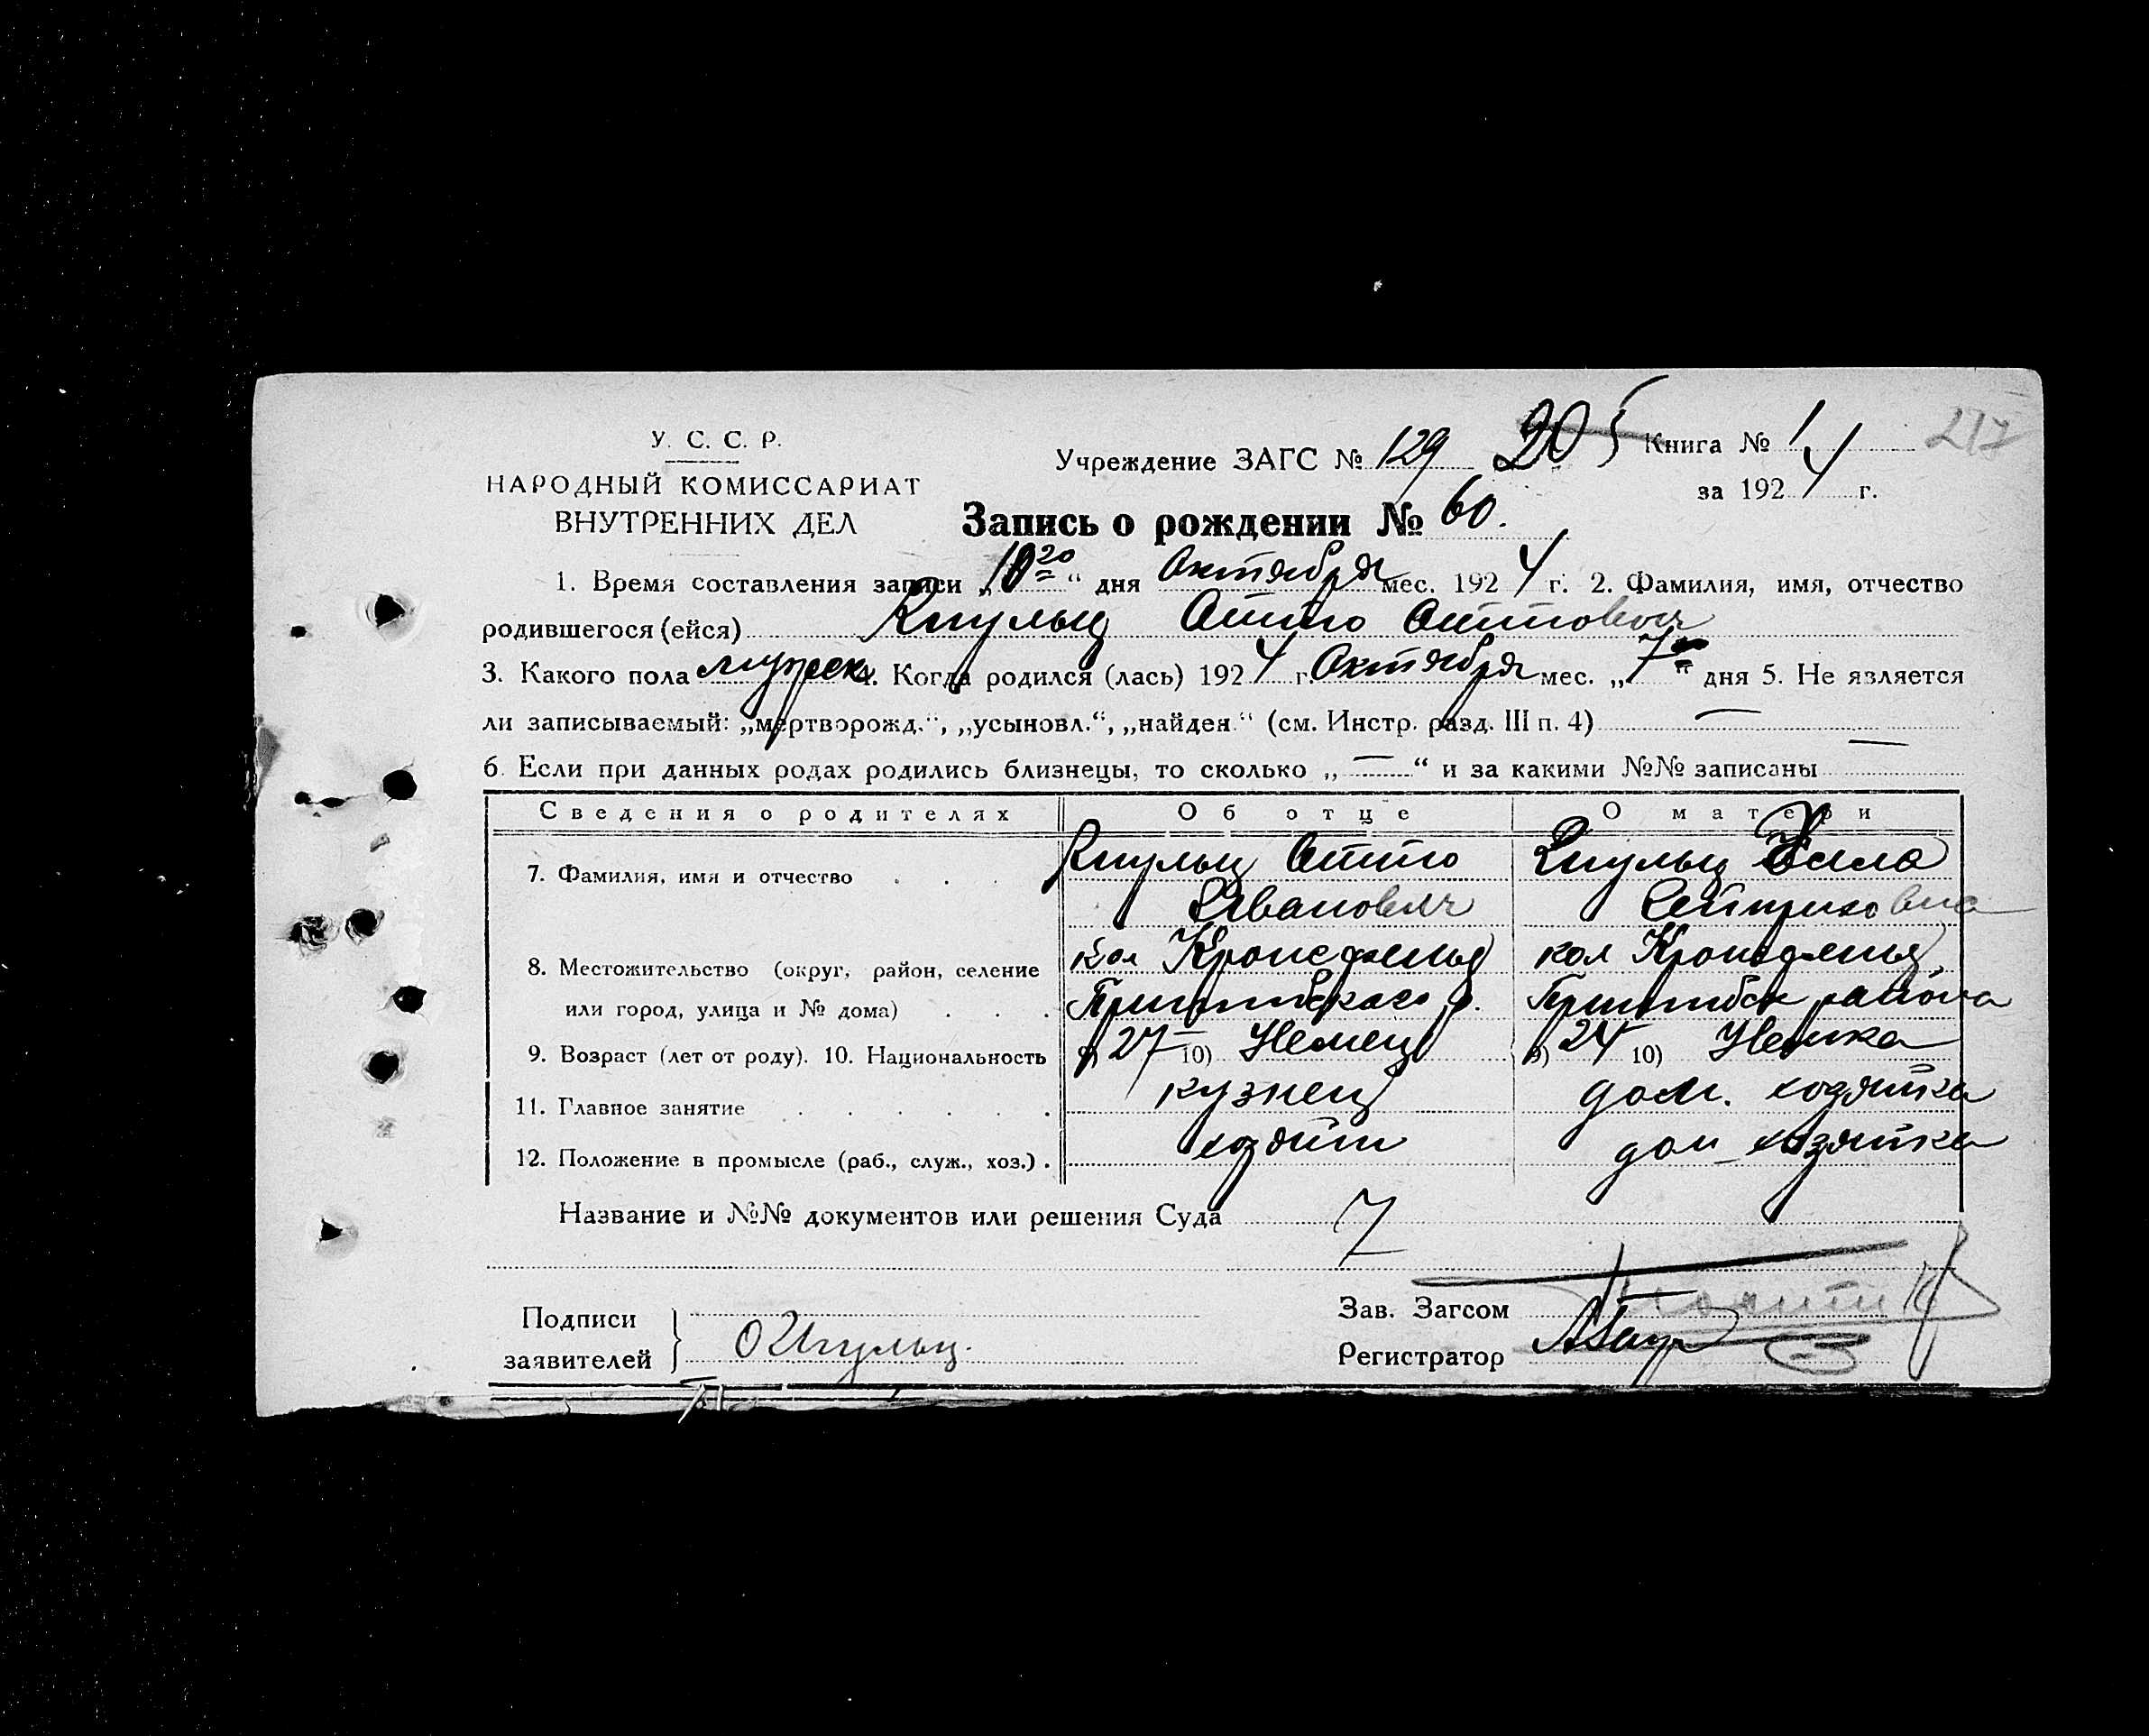 У. С. С. Р.
НАРОДНЫЙ КОМИССАРИАТ
ВНУТРЕННИХ ДЕЛ
Учреждение ЗАГС № 129 205 Книга № 1 217
за 1924 г.
Запись о рождении № 60.
1. Время составления записи „10" дня Октября мес. 1924 г. 2. Фамилия, имя, отчество
родившегося (ейся) Отто Оттович
3. Какого пола мужск 4. Когда родился (лась) 1924 г. Октября мес. „7" дня 5. Не является
ли записываемый: „мертворожд.", „усыновл.", „найден." (см. Инстр. разд. III п. 4) —
6. Если при данных родах родились близнецы, то сколько „—" и за какими №№ записаны —
Сведения о родителях Об отце О матери
7. Фамилия, имя и отчество . . . Отто
Иванович
8. Местожительство (округ, район, селение кол Кронсфельд кол Кронсфельд,
или город, улица и № дома) . . . Пришибского р. Пришибск района
9. Возраст (лет от роду). 10. Национальность 9) 27 10) Немец 9) 24 10) Немка
11. Главное занятие . . . . . . кузнец дом. хозяйка
12. Положение в промысле (раб., служ., хоз.) . дом хозяйка
Название и №№ документов или решения Суда
Подписи
заявителей
Зав. Загсом
Регистратор